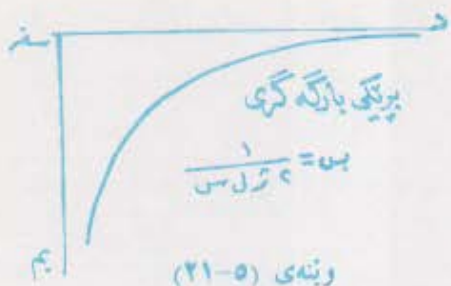 د
سفر
بڕێکی بارگە گری
بس = ١ / ٢ ژ ل س
بم
وێنەی (٥-٢١)